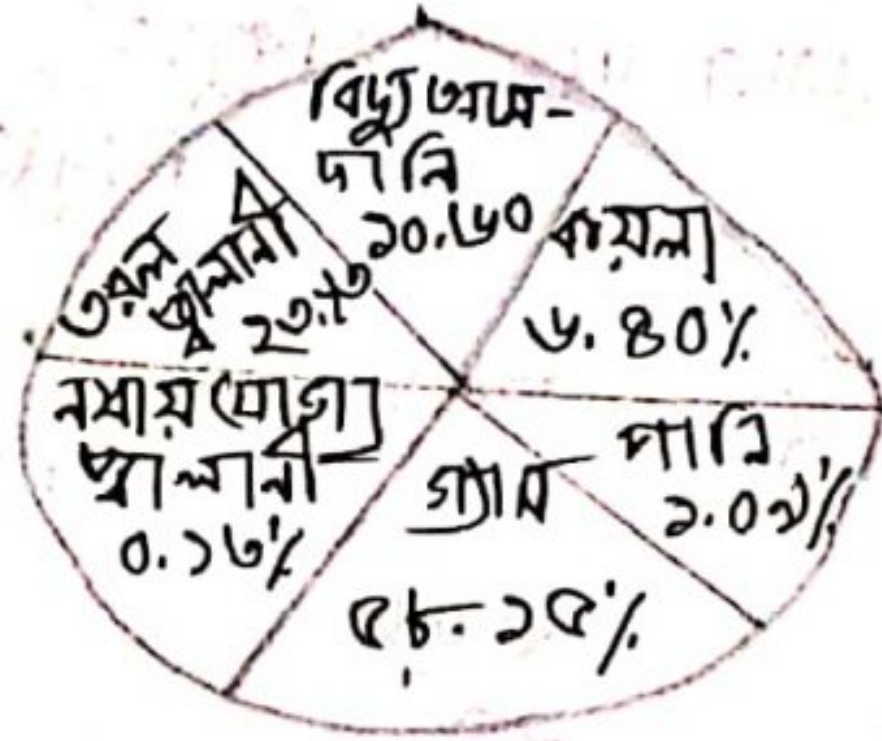 বিদ্যুৎ আম-
দানি
১০.৬০
কয়লা
৬.৪০%
পানি
১.০৯%
গ্যাস
৫৮.১৫%
নবায়ন যোগ্য
জ্বালানী
০.১৬%
তরল
জ্বালানী